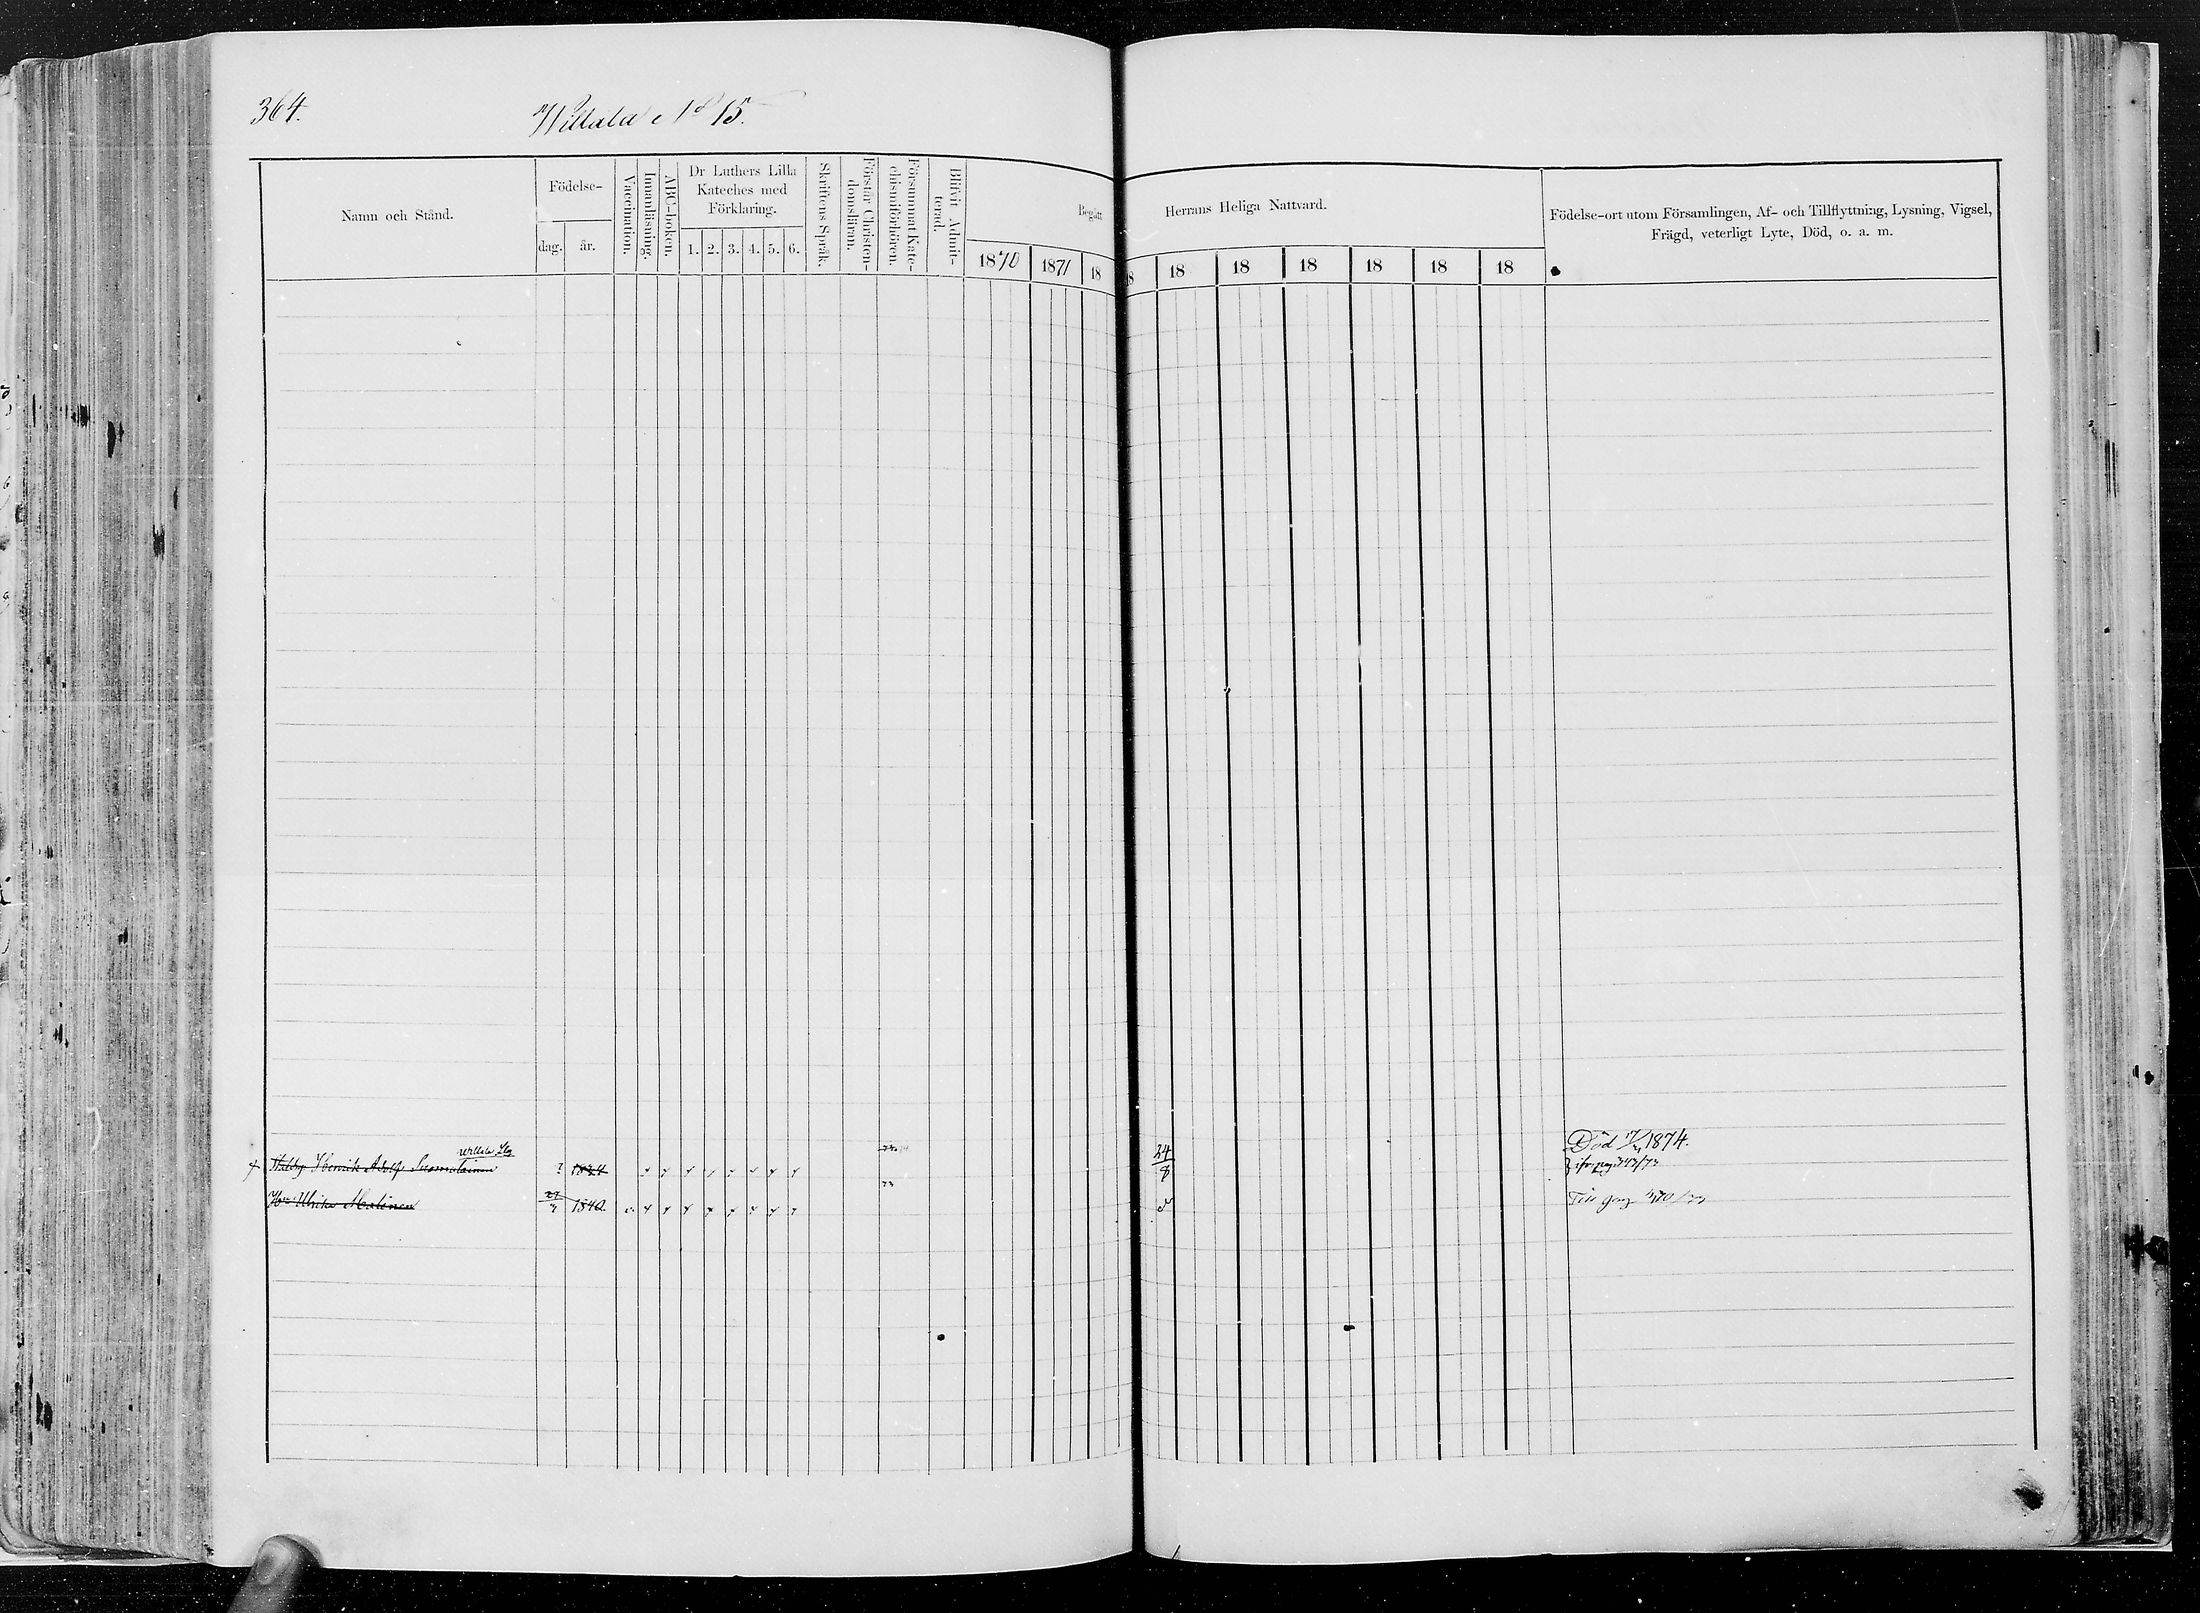 364.
Willala No 15.
Namn och Stånd.
Födelse-
dag.
år.
Vaccination.
Innanläsning.
ABC-boken.
Dr Luthers Lilla
Kateches med
Förklaring.
1. 2. 3. 4. 5. 6.
Skriftens Språk.
Förstår Christen-
domsläran.
Försummat Kate-
chismiförhören.
Blifvit Admit-
terad.
Begått
1870 1871 18
Herrans Heliga Nattvard.
18 18 18 18 18 18 18
Födelse-ort utom Församlingen, Af- och Tillflyttning, Lysning, Vigsel,
Frägd, veterligt Lyte, Död, o. a. m.
Willala
Henrik Adolf Suomalainen ? 1834 24/8 Död 1874.
73
Hu Ulrika 1840.